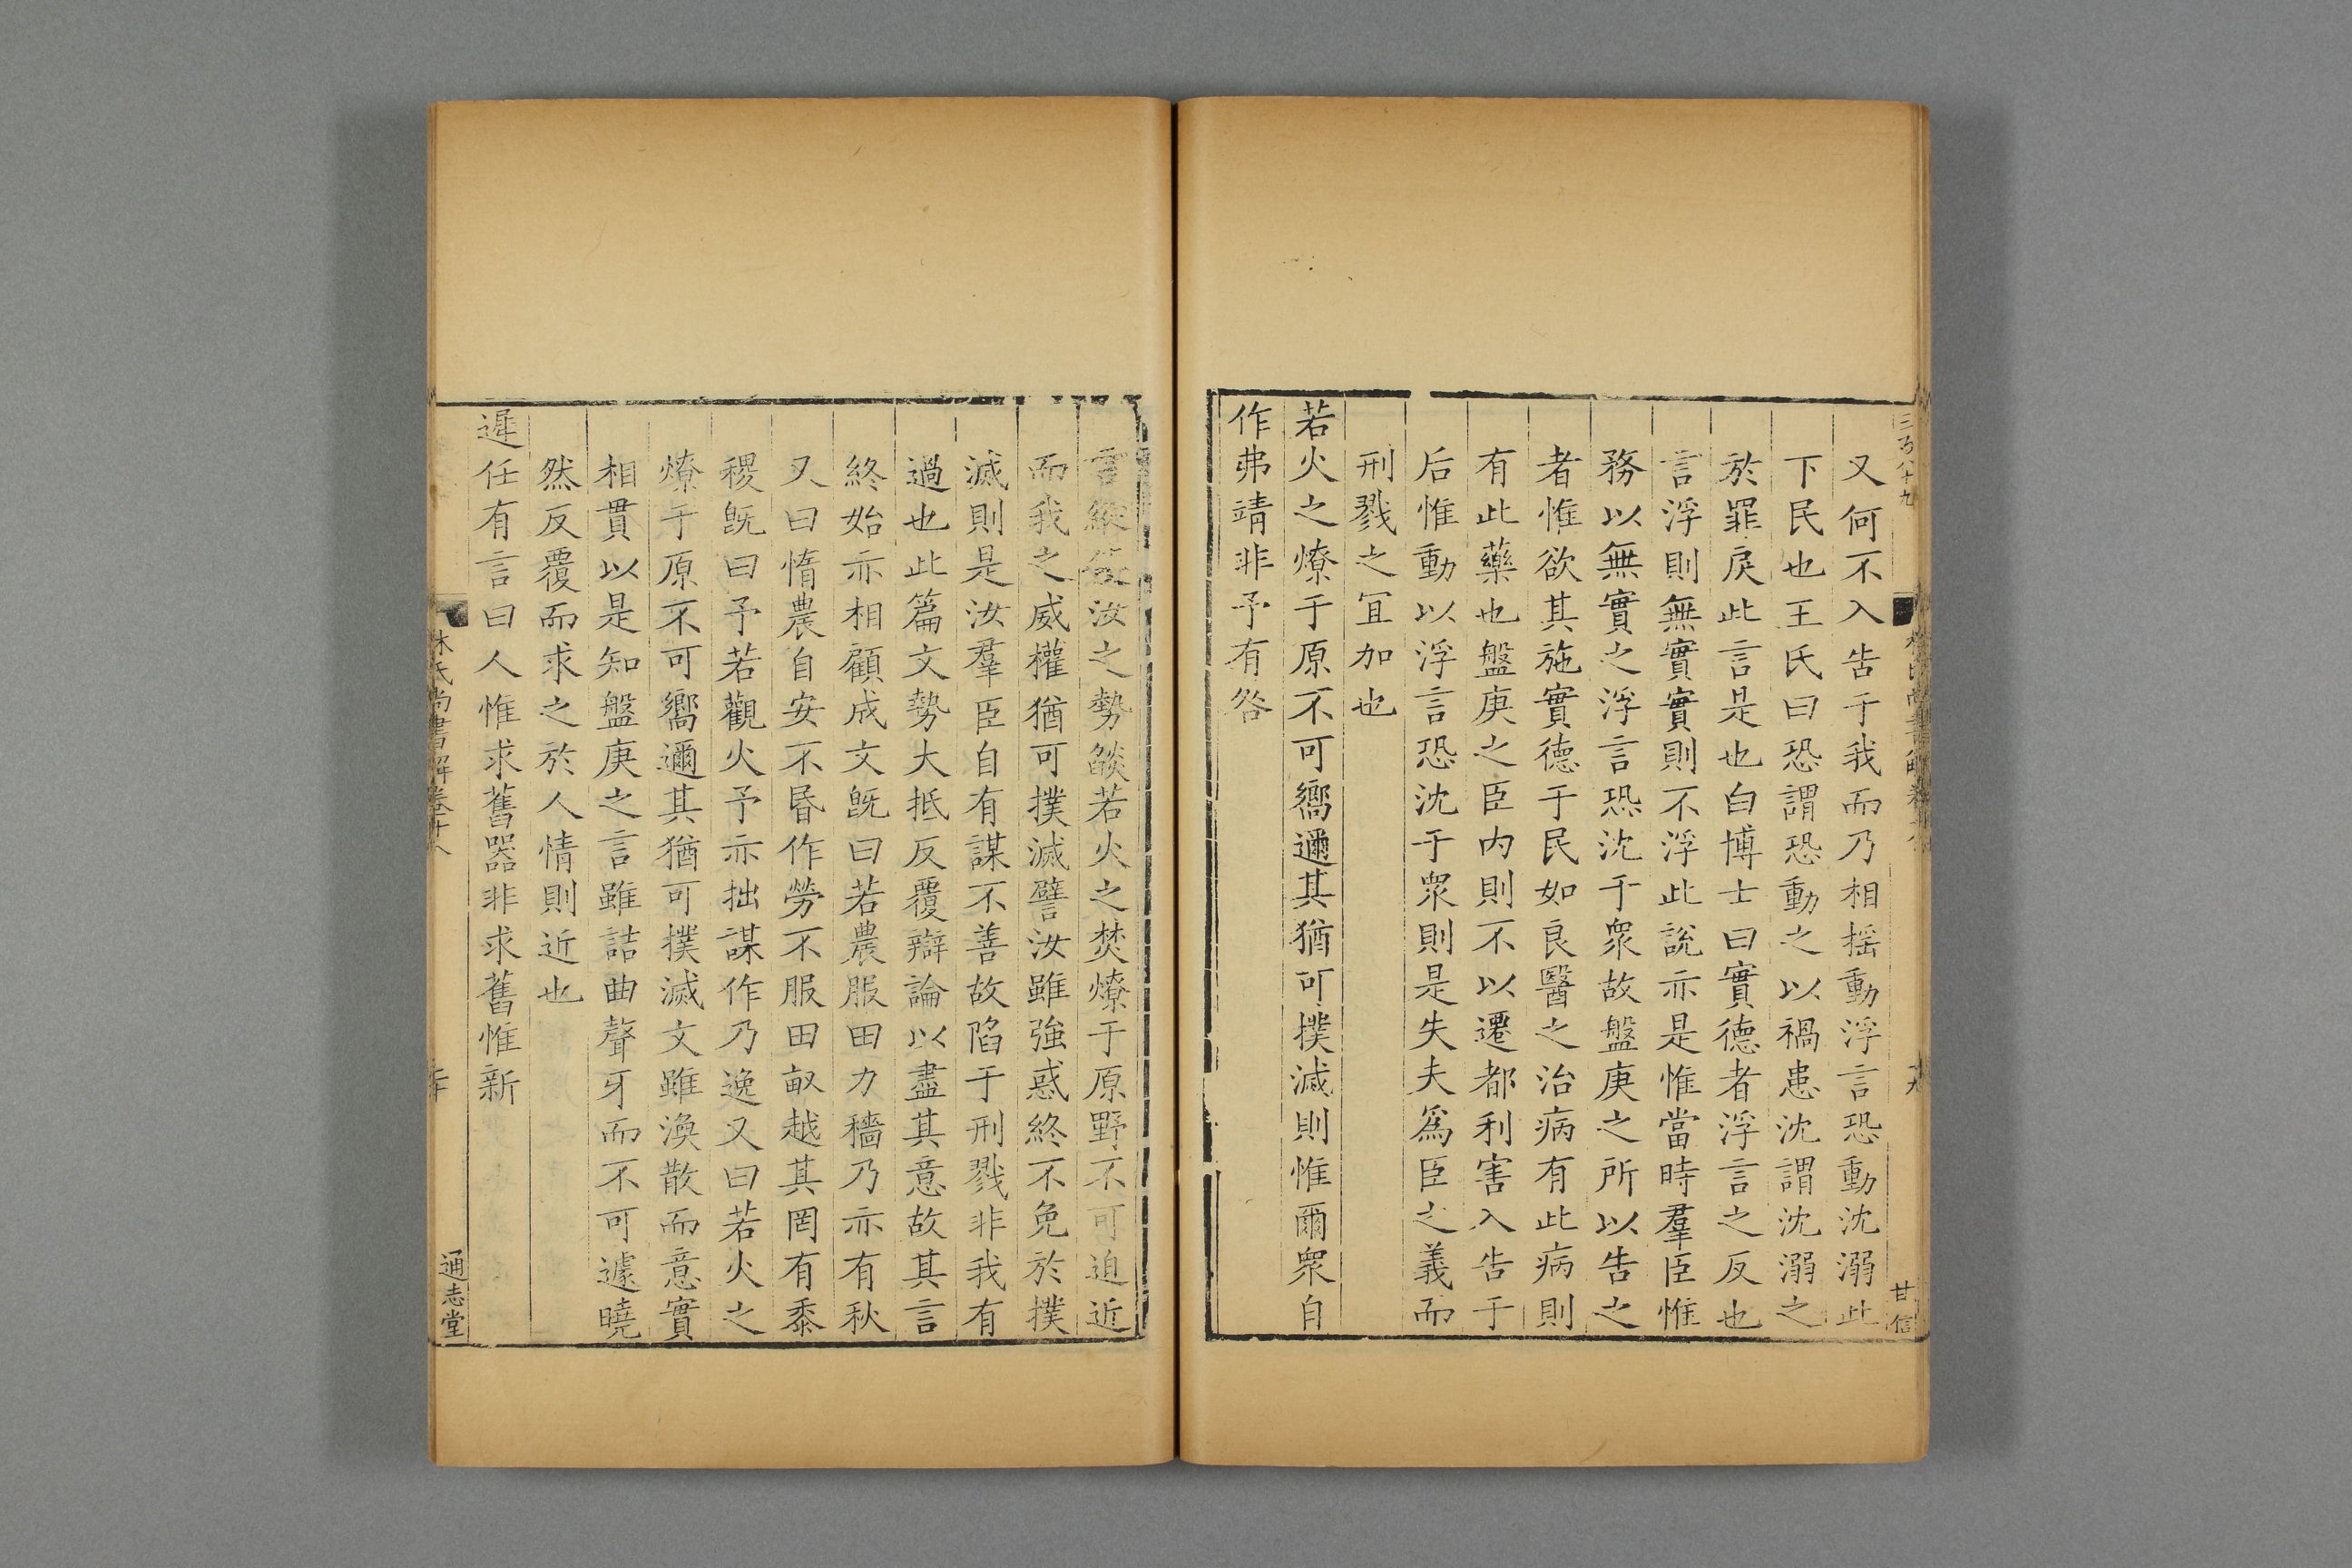 三百八十九
又何不入告于我而乃相揺動浮言恐動沈溺此
下民也王氏曰恐謂恐動之以禍患沈謂沈溺之
於罪戾此言是也白博士曰實德者浮言之反也
言浮則無實實則不浮此說亦是惟當時羣臣惟
務以無實之浮言恐沈于衆故盤庚之所以告之
者惟欲其施實德于民如良醫之治病有此病則
有此藥也盤庚之臣内則不以遷都利害入告于
后惟動以浮言恐沈于衆則是失夫爲臣之義而
刑戮之冝加也
若火之燎于原不可嚮邇其猶可撲滅則惟爾衆自
作弗靖非予有咎
甘信
言縱汝之勢燄若火之焚燎于原野不可迫近
而我之威權猶可撲滅譬汝雖強惑終不免於撲
滅則是汝羣臣自有謀不善故陷于刑戮非我有
過也此篇文勢大抵反覆辯論以盡其意故其言
終始亦相顧成文旣曰若農服田力穡乃亦有秋
又曰惰農自安不昬作勞不服田畝越其罔有黍
稷旣曰予若觀火予亦拙謀作乃逸又曰若火之
燎于原不可嚮邇其猶可撲滅文雖渙散而意實
相貫以是知盤庚之言雖詰曲聲牙而不可遽曉
然反覆而求之於人情則近也
遲任有言曰人惟求舊器非求舊惟新
林氏尚書解卷十八
通志堂